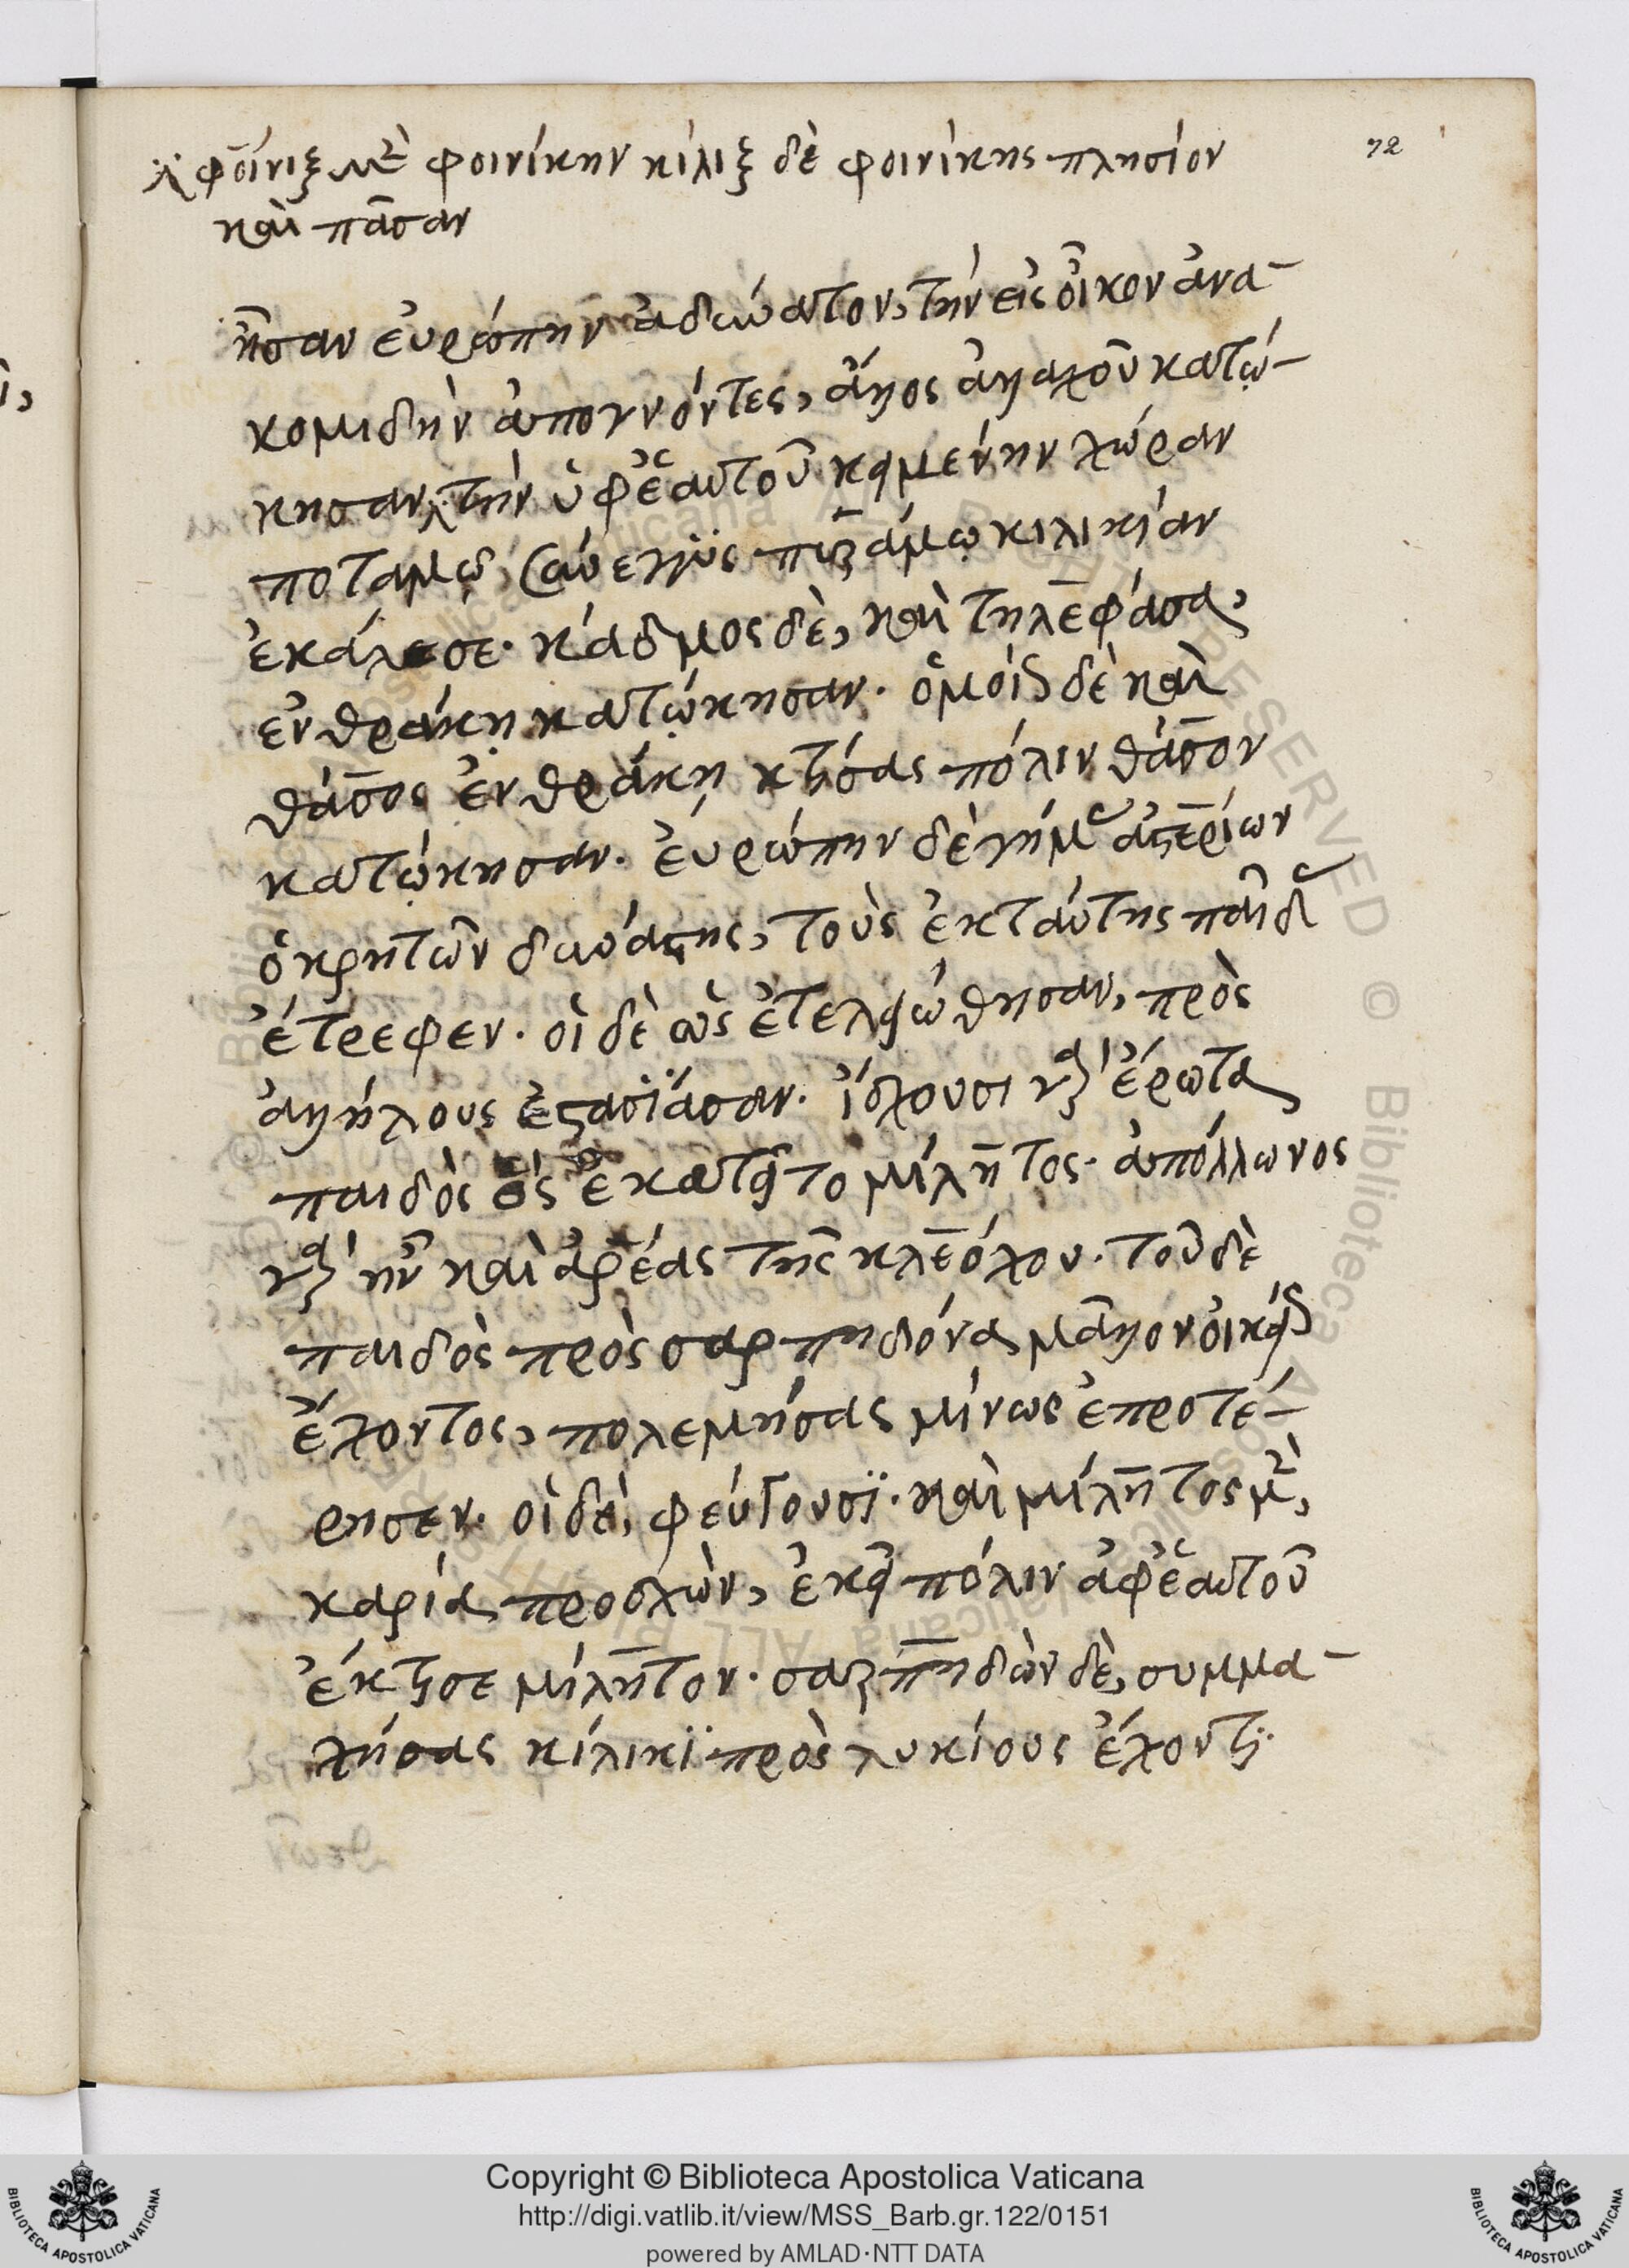 72
φοίνιξ μὲν φοινίκην κίλιξ δὲ φοινίκης πλησίον
καὶ πᾶσαν
ῆσαν εὐρώπην ἀδύνατον, τὴν εἰς οἶκον ἀνα-
κομιδὴν ἀπογνόντες, ἄλλος ἀλλαχοῦ κατῴ-
κησαν, τὴν ὑφ' ἑαυτοῦ κειμένην χώραν
ποταμῷ σύνεγγυς πυράμῳ κιλικίαν
ἐκάλεσε· κάδμος δὲ, καὶ τηλεφάσα,
ἐν θράκῃ κατῴκησαν. ὁμοίως δὲ καὶ
θάσος ἐν θράκῃ κτίσας πόλιν θάσον
κατῴκησαν. εὐρώπην δὲ γήμας ἀστερίων
ὁ κρητῶν δυνάστης, τοὺς ἐκ ταύτης παῖδας
ἔτρεφεν. οἱ δὲ ὡς ἐτελειώθησαν, πρὸς
ἀλλήλους ἐστασΐασαν. ἴσχουσι γὰρ ἔρωτα
παιδὸς ὃς ἐκαλεῖτο μίλητος. ἀπόλλωνος
γὰρ ἦν καὶ ἀρείας τῆς κλεόχου. τοῦ δὲ
παιδὸς πρὸς σαρπηδόνα μᾶλλον οἰκείως
ἔχοντος, πολεμήσας μίνως ἐπροτέ-
ρησεν. οἱ δὲ, φεύγουσϊ. καὶ μίλητος μὲν,
καρίᾳ προσχὼν, ἐκεῖ πόλιν ἀφ' ἑαυτοῦ
ἔκτισε μίλητον. σαρπηδὼν δὲ, συμμα-
χήσας κίλικϊ πρὸς λυκίους ἔχοντι.
Copyright © Biblioteca Apostolica Vaticana
http://digi.vatlib.it/view/MSS_Barb.gr.122/0151
powered by AMLAD·NTT DATA
BIBLIOTECA APOSTOLICA VATICANA
BIBLIOTECA APOSTOLICA VATICANA